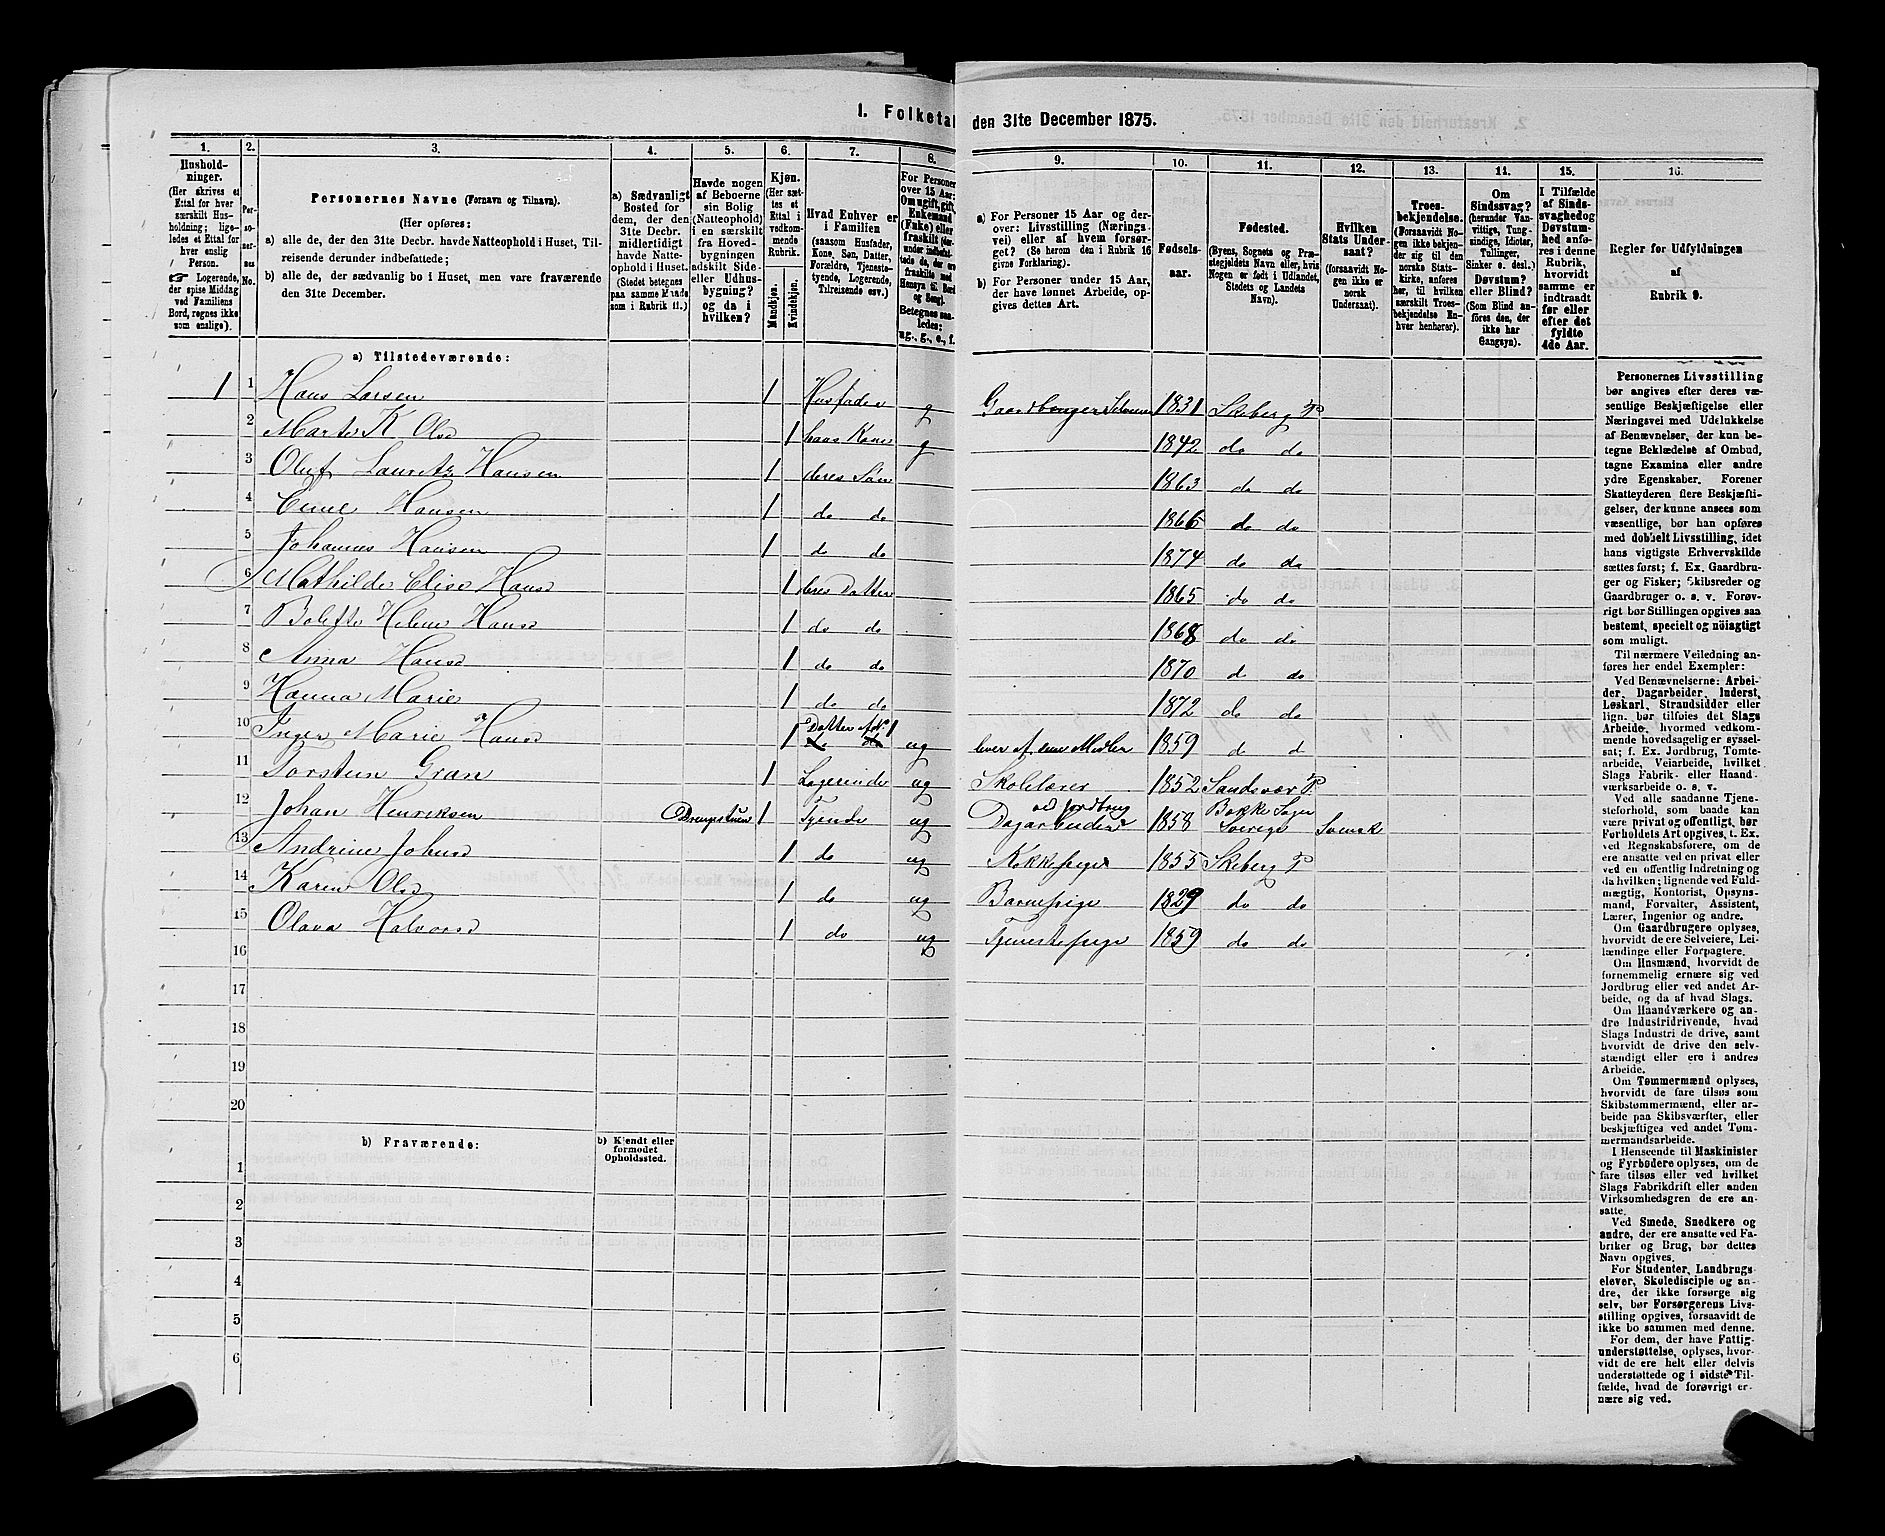 1. Folketal den 31te December 1875.
1. 2. 3. 4. 5. 6. 7. 8. 9. 10. 11. 12. 13. 14. 15. 16.
Husholdninger.
(Her skrives et Ettal for hver særskilt Husholdning; ligeledes et Ettal for hver enslig Person.
☞ Logerende, der spise Middag ved Familiens Bord, regnes ikke som enslige).
Personernes No.
Personernes Navne (Fornavn og Tilnavn).
(Her opføres:
a) alle de, der den 31te Decbr. havde Natteophold i Huset, Tilreisende derunder indbefattede;
b) alle de, der sædvanlig bo i Huset, men vare fraværende den 31te December.
a) Sædvanligt Bosted for dem, der den 31te Decbr. midlertidigt havde Natteophold i Huset. (Stedet betegnes paa samme Maade som i Rubrik 11.)
Havde nogen af Beboerne sin Bolig (Natteophold) i en særskilt fra Hovedbygningen adskilt Side- eller Udhusbygning? og da i hvilken?
Kjøn.
(Her sættes et Ettal i vedkommende Rubrik.
Mandkjøn. Kvindkjøn.
Hvad Enhver er i Familien
(saasom Husfader, Kone, Søn, Datter, Forældre, Tjenestetyende, Logerende, Tilreisende osv.)
For Personer over 15 Aar: Om ugift, gift, Enkemand (Enke) eller fraskilt
Betegnes saaledes: ug., g., e., f.
a) For Personer 15 Aar og derover: Livsstilling (Næringsvei) eller af hvem forsørget? (Se herom den i Rubrik 16 givne Forklaring).
b) For Personer under 15 Aar, der have lønnet Arbeide, opgives dettes Art.
Fødselsaar.
Fødested.
(Byens, Sognets og Præstegjeldets Navn eller, hvis Nogen er født i Udlandet, Stedets og Landets Navn).
Hvilken Stats Undersaat?
(forsaavidt Nogen ikke er norsk Undersaat).
Troesbekjendelse.
(Forsaavidt Nogen ikke bekjender sig til den norske Statskirke, anføres her, til hvilken særskilt Troesbekjendelse Enhver henhører).
Om Sindssvag?
(herunder Vanvittige, Tungsindige, Idioter, Tullinger, Sinker o. desl.)
Døvstum? eller Blind?
(Som Blind anføres den, der ikke har Gangsyn).
I Tilfælde af Sindssvaghed og Døvstumhed anføres i denne Rubrik, hvorvidt samme er indtraadt før eller efter det fyldte 4de Aar.
Regler for Udfyldningen af Rubrik 9.
a) Tilstedeværende:
1 1 Hans Larsen 1 Husfader g Gaardbruger Selveier 1831 Skeberg P
2 Marte K Olsd 1 hans Kone g 1842 do do
3 Oluf Lauritz Hansen 1 deres Søn 1863 do do
4 Emil Hansen 1 do do 1866 do do
5 Johannes Hansen 1 do do 1874 do do
6 Mathilde Elise Hansd 1 deres Datter 1865 do do
7 Bolette Helene Hansd 1 do do 1868 do do
8 Anna Hansd 1 do do 1870 do do
9 Hanna Marie 1 do do 1872 do do
10 Inger Marie Hansd 1 Datter af No. 1 ug lever af sine Midler 1859 d d
11 Torsten Gran 1 Logerende ug Skolelærer 1852 Sandsvær P.
12 Johan Henriksen 1 Tjende ug Dagarbeider ved Jordbrug 1858 Bokke Sogn Sverige Svensk
13 Andrine Johnsd 1 do ug Kokkepige 1855 Skeberg P
14 Karen Olsd 1 do ug Barnepige 1829 do do
15 Olava Halvorsd 1 do ug Tjenestepige 1859 do do
16
17
18
19
20
b) Fraværende: b) Kjendt eller formodet Opholdssted.
1
2
3
4
5
6
Personernes Livsstilling bør angives efter deres væsentlige Beskjæftigelse eller Næringsvei med Udelukkelse af Benævnelser, der kun betegne Beklædelse af Ombud, tagne Examina eller andre ydre Egenskaber. Forener Skatteyderen flere Beskjæftigelser, der kunne ansees som væsentlige, bør han opføres med dobbelt Livsstilling, idet hans vigtigste Erhvervskilde sættes først; f. Ex. Gaardbruger og Fisker; Skibsreder og Gaardbruger o. s. v. Forøvrigt bør Stillingen opgives saa bestemt, specielt og nøiagtigt som muligt.
Til nærmere Veiledning anføres her endel Exempler:
Ved Benævnelserne: Arbeider, Dagarbeider, Inderst, Løskarl, Strandsidder eller lign. bør tilføies det Slags Arbeide, hvormed vedkommende hovedsagelig er sysselsat; f. Ex. Jordbrug, Tomtearbeide, Veiarbeide, hvilket Slags Fabrik- eller Haandværksarbeide o. s. v.
Ved alle saadanne Tjenesteforhold, som baade kan være privat og offentligt, bør Forholdets Art opgives, t. Ex. ved Regnskabsførere, om de ere ansatte ved en privat eller ved en offentlig Indretning og da hvilken; lignende ved Fuldmægtig, Kontorist, Opsynsmand, Forvalter, Assistent, Lærer, Ingeniør og andre.
Om Gaardbrugere oplyses, hvorvidt de ere Selveiere, Leilændinge eller Forpagtere.
Om Husmænd, hvorvidt de fornemmelig ernære sig ved Jordbrug eller ved andet Arbeide, og da af hvad Slags.
Om Haandværkere og andre Industridrivende, hvad Slags Industri de drive, samt hvorvidt de drive den selvstændigt eller ere i andres Arbeide.
Om Tømmermænd oplyses, hvorvidt de fare tilsøs som Skibstømmermænd, eller arbeide paa Skibsværfter, eller beskjæftiges ved andet Tømmermandsarbeide.
I Henseende til Maskinister og Fyrbødere oplyses, om de fare tilsøs eller ved hvilket Slags Fabrikdrift eller anden Virksomhedsgren de ere ansatte.
Ved Smede, Snedkere og andre, der ere ansatte ved Fabriker og Brug, bør dettes Navn opgives.
For Studenter, Landbrugselever, Skoledisciple og andre, der ikke forsørge sig selv, bør Forsørgerens Livsstilling opgives, forsaavidt de ikke bo sammen med denne.
For dem, der have Fattigunderstøttelse, oplyses, hvorvidt de ere helt eller delvis understøttede og i sidste Tilfælde, hvad de forøvrigt ernære sig ved.